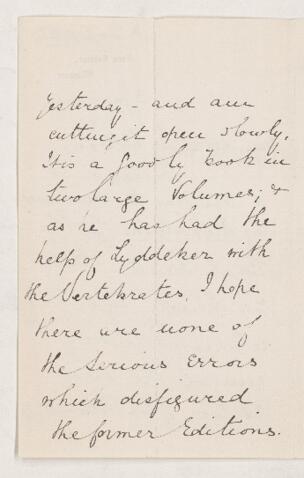 Yesterday - and am
cutting it open slowly.
It is a goodly book in
two large Volumes; &
as he has had the
help of Lyddeker with
the Vertebrates, I hope
there are none of
the serious errors
which disfigured
the former Editions.